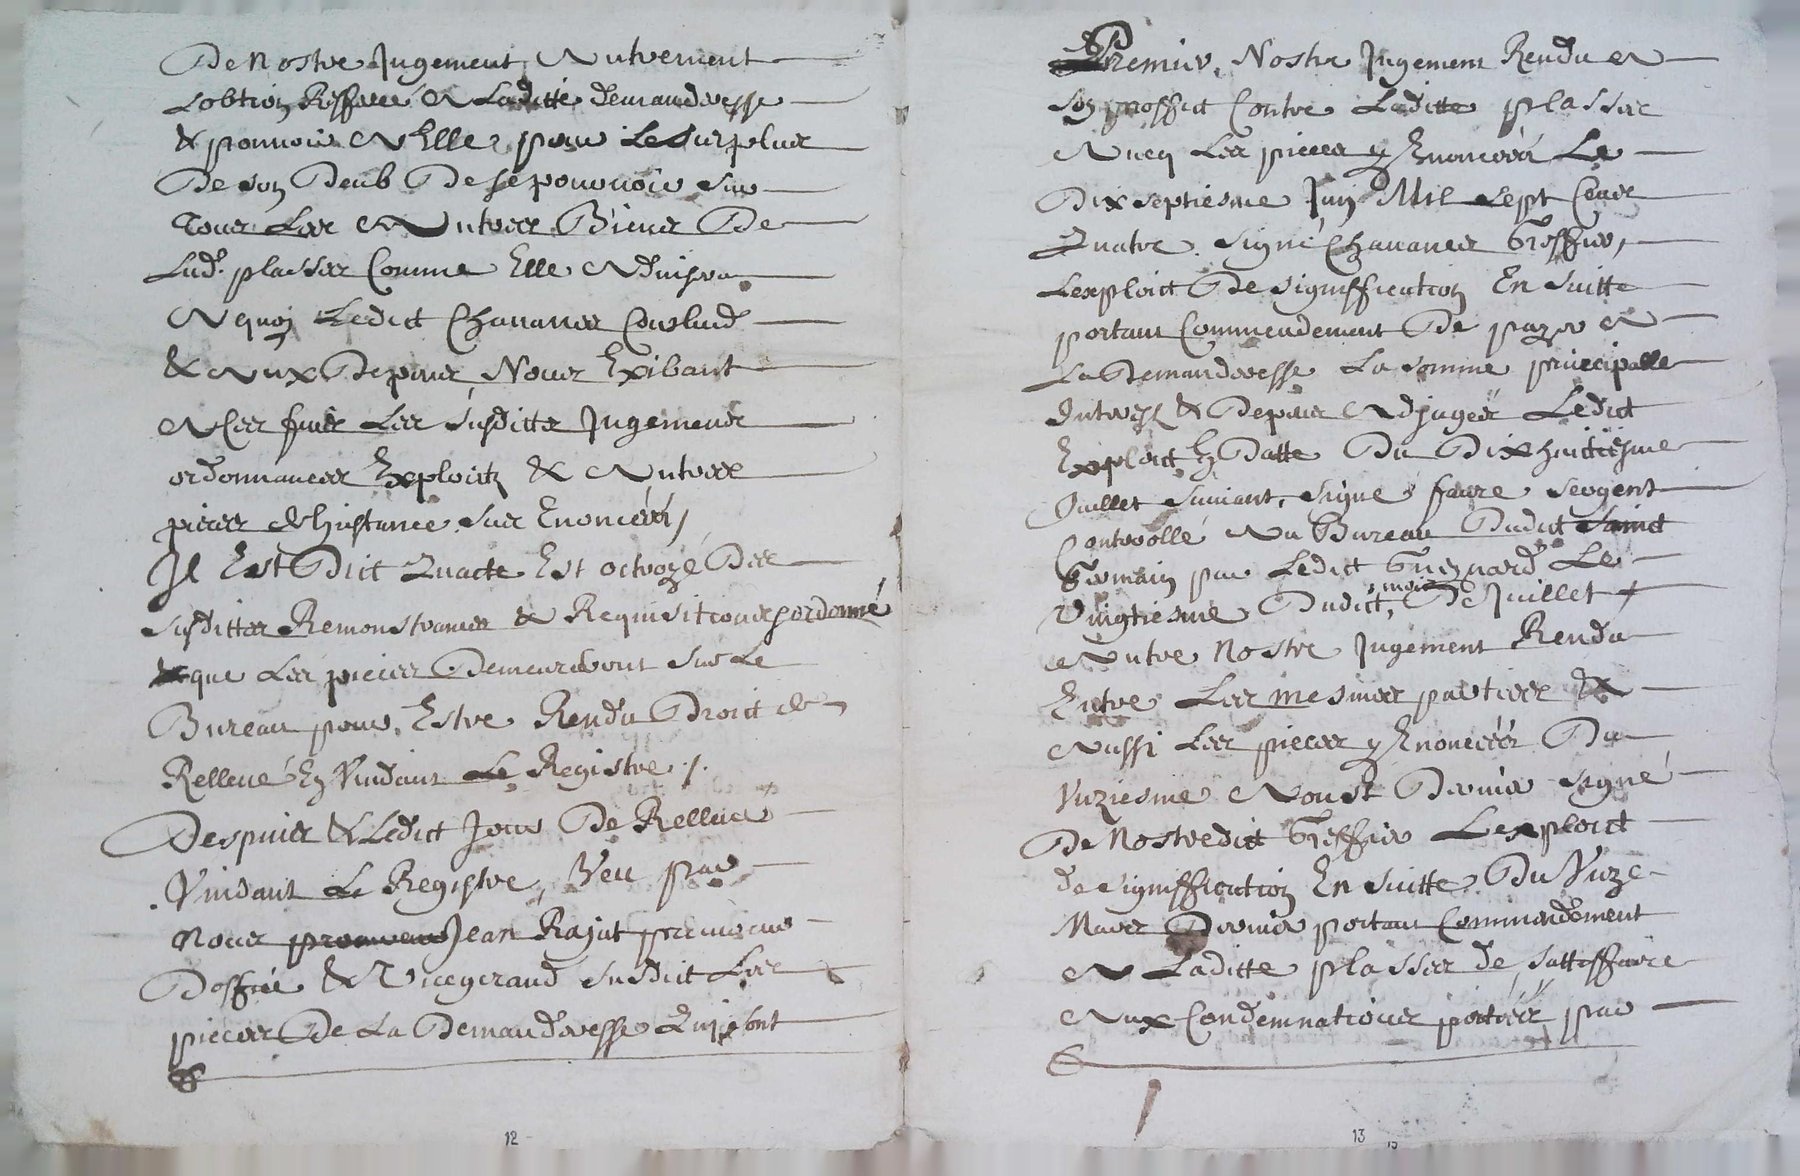 De nostre Jugement, Autrement
Lobtion Refferée A Laditte demanderesse
& pouvoir A Elle, pour Le surplus
De son Deub De se pourvoir sur
Tous Les Autres Biens De
Lad.e plasses Comme Elle Advisera
A quoj Ledict Chavanes Conclud
& Aux Depens, Nous Exibant
A Ces fins Les susdittes Jugements
ordonnances Exploitz & Autres
pieces dhinstance sus Enoncéés /
Jl Est Dict Quacte Est octroyé Des
susdittes Remonstrances & Requisitions, ordonné
que Les pieces Demeureront sur Le
Bureau pour, Estre Rendu Droict &
Rellevé En Vuidant Le Registre /.
Despuis & Ledict Jour De Rellevée
Vuidant Le Registre, Veu par
nous Jean Rajat premier
Doffice & Vicegerand susdict Les
pieces De La Demanderesse Qui sont
12
Premier, Nostre Jugement Rendu A
son proffict Contre Laditte plasses
Avecq Les pieces y Enoncéés Le
Dix septiesme Juin Mil sept Cens
Quatre. signé Chavanes Greffier,
Lexploict De signiffication En suitte
portant Commendement De payer A
La Demanderesse La somme principalle
Interestz & Depens Adjugéés Ledict
Exploict En Datte Du Dixhuictiesme
Juillet suivant, signé faure sergent
Controllé Au Bureau Dudict sainct
Germain par Ledict Greynard Le
Vingtiesme Dudict, mois De Juillet /
Autre Nostre Jugement Rendu
Entre Les mesmes parties &
Aussi Les pieces y Enoncéés Du
Vnziesme Aoust Dernier signé
De Nostredict Greffier Lexploict
de signiffication En suitte. Du Vnze
Mars Dernier portant Commendement
A Laditte plasses de sattisffaire
Aux Condemnations portéés par
13